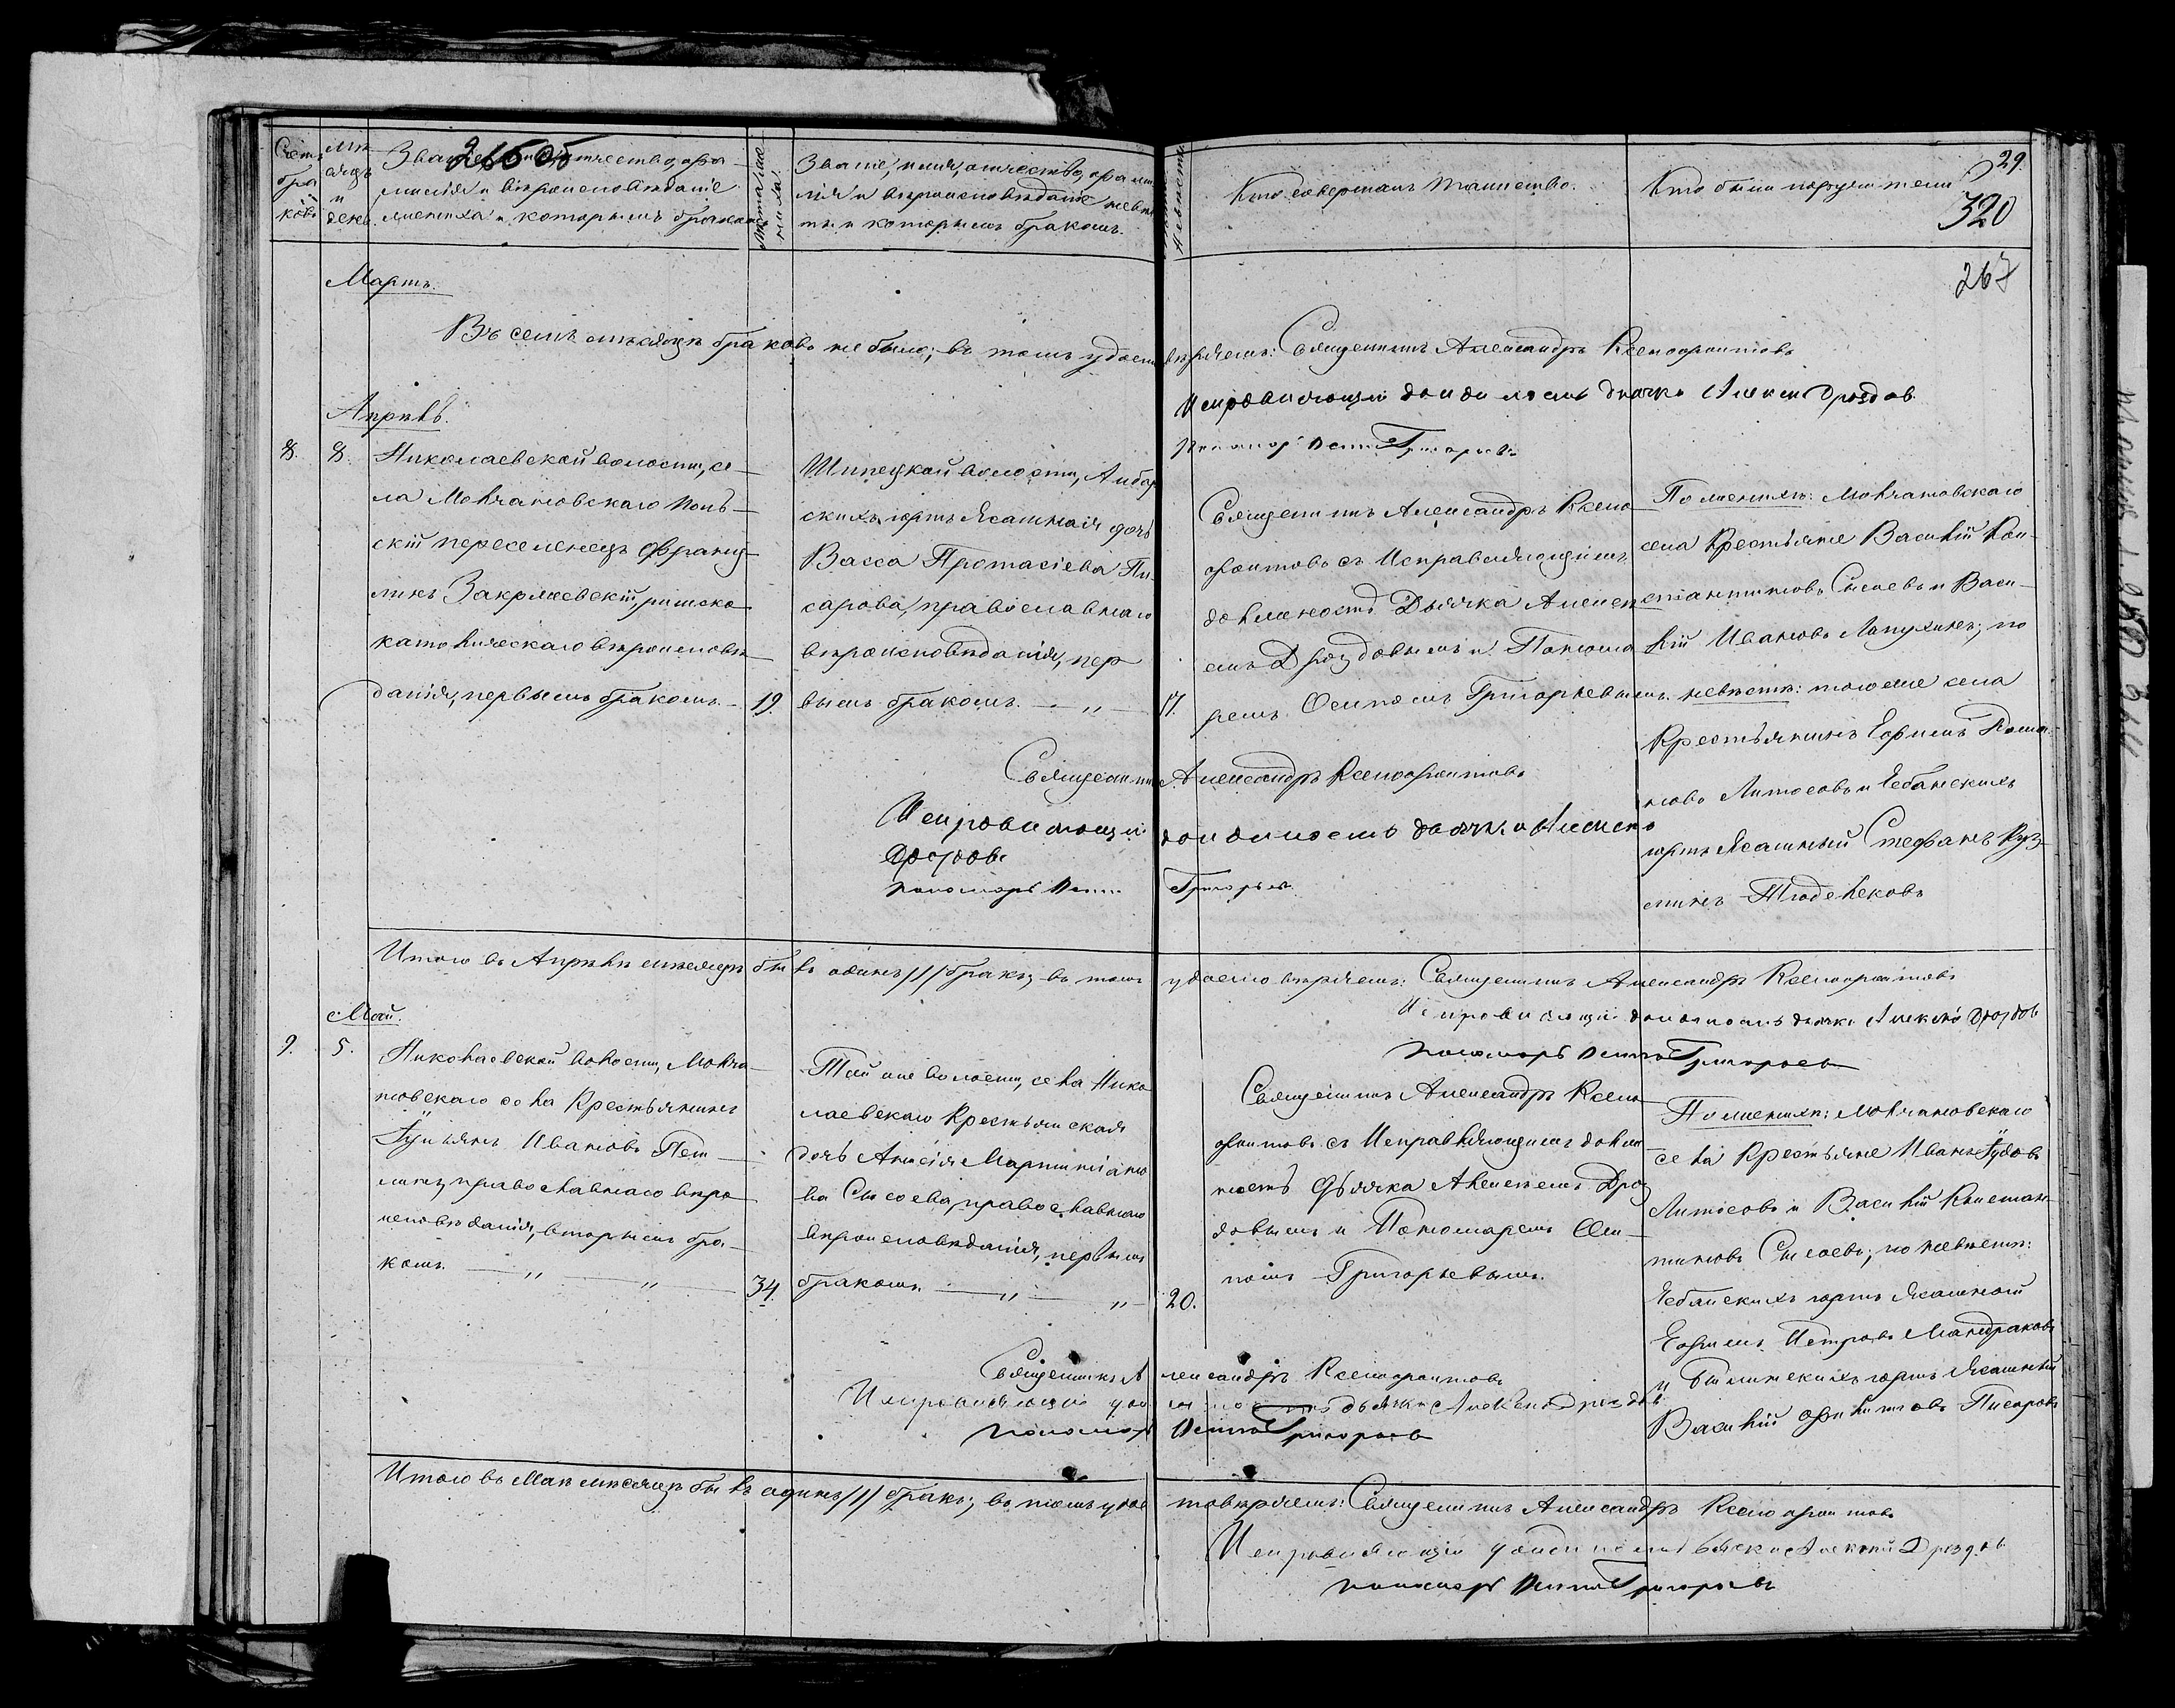 Счетъ браковъ
Мѣсяцъ и день.
266 об
Званіе, имя, отчество, фамилія и вѣроисповѣданіе жениха и которымъ бракомъ
Лѣта жениха.
Званіе, имя, отчество, фамилія и вѣроисповѣданіе невѣсты и которымъ бракомъ.
Невѣсты.
Кто совершалъ таинство.
Кто были поручители
29.
320
267
Мартъ.
Въ семъ мѣсяцѣ браковъ не было; въ томъ удостовѣряемъ: Священникъ Александръ Ксенофонтовъ
Исправляющій должность дьячка Алексѣй Дроздовъ
Пономарь Осипъ Григорьевъ
Апрѣль.
8.
8.
Николаевской волости, се-
ла Молчановскаго поль-
скій переселенецъ Франц-
ликъ Закржевскій, римско
католическаго вѣроисповѣ-
данія, первымъ бракомъ. —
19.
Шипецкой волости, Амбар
скихъ юртъ Ясашная дочь
Васса Протасіева Пи-
сарова, православнаго
вѣроисповѣданія, пер
вымъ бракомъ. — „ —
17.
Священникъ Александръ Ксено
фонтовъ съ Исправляющимъ
должность Дьячка Алексѣ
емъ Дроздовымъ и Понома
ремъ Осипомъ Григорьевымъ.
По женихѣ: Молчановскаго
села Крестьяне Василій Кон-
стантиновъ Сысоевъ и Васи-
лій Ивановъ Лапухинъ; по
невѣстѣ: тогоже села
Крестьянинъ Ефимъ Рома-
новъ Литосовъ и
юртъ Ясашный Стефанъ Куз-
минъ Тюделековъ
Священникъ Александръ Ксенофонтовъ
Исправляющій должность дьячка Алексѣй
Дроздовъ
пономарь Осипъ Григорьевъ
Итого въ Апрѣлѣ мѣсяцѣ былъ одинъ /1/ бракъ; въ томъ удостовѣряемъ: Священникъ Александръ Ксенофонтовъ
Исправляющій должность дьячка Алексѣй Дроздовъ
пономарь Осипъ Григорьевъ
Май.
9.
5.
Николаевской волости, Молча-
новскаго села Крестьянинъ
Гульянъ Ивановъ Пет-
линъ, православнаго вѣро-
исповѣданія, вторымъ бра-
комъ. — „ — „ —
34.
Той же волости, села Нико
лаевскаго Крестьянская
дочь Анисія Мартиніано
ва Сысоева, православнаго
вѣроисповѣданія, первымъ
бракомъ. — „ — „ —
20.
Священникъ Александръ Ксено
фонтовъ съ Исправляющимъ долж
ность Дьячка Алексѣемъ Дроз
довымъ и Пономаремъ Оси-
помъ Григорьевымъ.
По женихѣ: Молчановскаго
села Крестьяне Иванъ
Литосовъ и Василій Констан-
тиновъ Сысоевъ; по невѣстѣ:
юртъ Ясашной
Ефимъ Петровъ Мандраковъ
и юртъ Ясашный
Василій Филиповъ Писаровъ
Священникъ Александръ Ксенофонтовъ
Исправляющій должность дьячка Алексѣй Дроздовъ
пономарь Осипъ Григорьевъ
Итого въ Маѣ мѣсяцѣ былъ одинъ /1/ бракъ; въ томъ удостовѣряемъ: Священникъ Александръ Ксенофонтовъ
Исправляющій должность дьячка Алексѣй Дроздовъ
пономарь Осипъ Григорьевъ